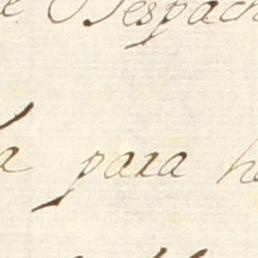 e Despach
a para h